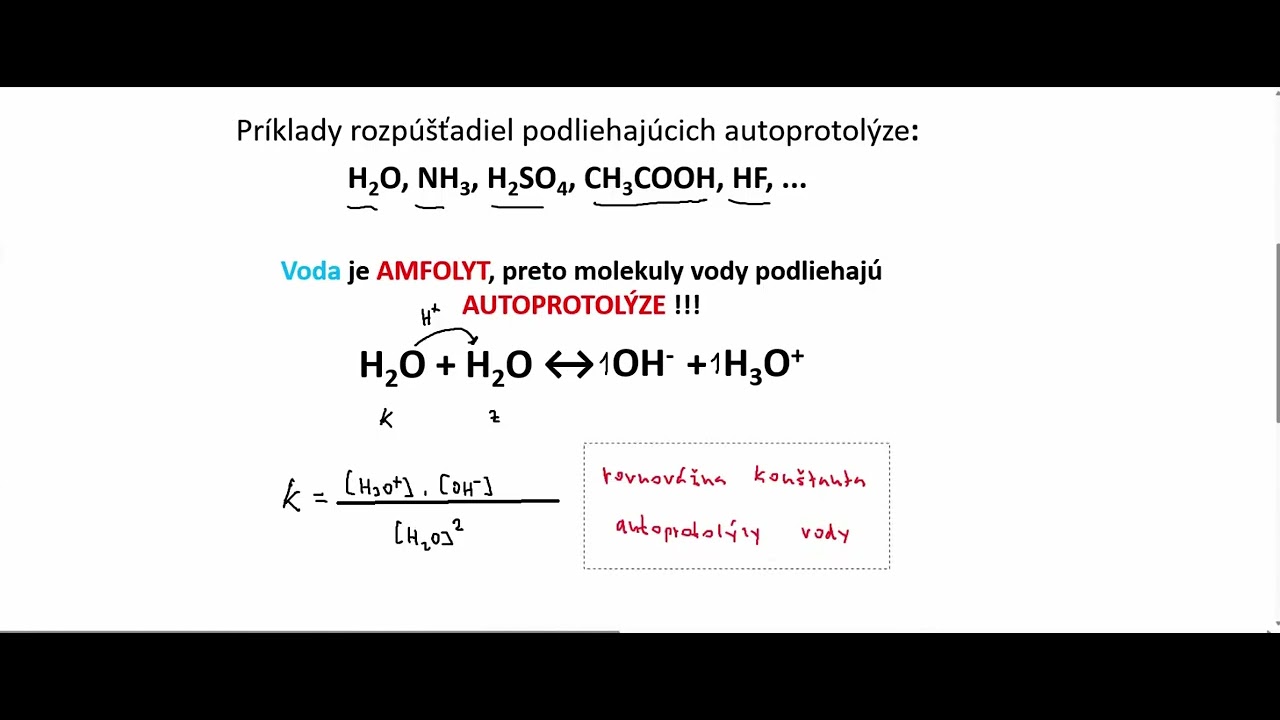 Príklady rozpúšťadiel podliehajúcich autoprotolýze:
H₂O, NH₃, H₂SO₄, CH₃COOH, HF, ...
Voda je AMFOLYT, preto molekuly vody podliehajú
AUTOPROTOLÝZE !!!
H⁺
H₂O + H₂O ↔ 1OH⁻ + 1H₃O⁺
K z
K = [H₃O⁺] . [OH⁻]
[H₂O]²
rovnovážna konštanta
autoprotolýzy vody